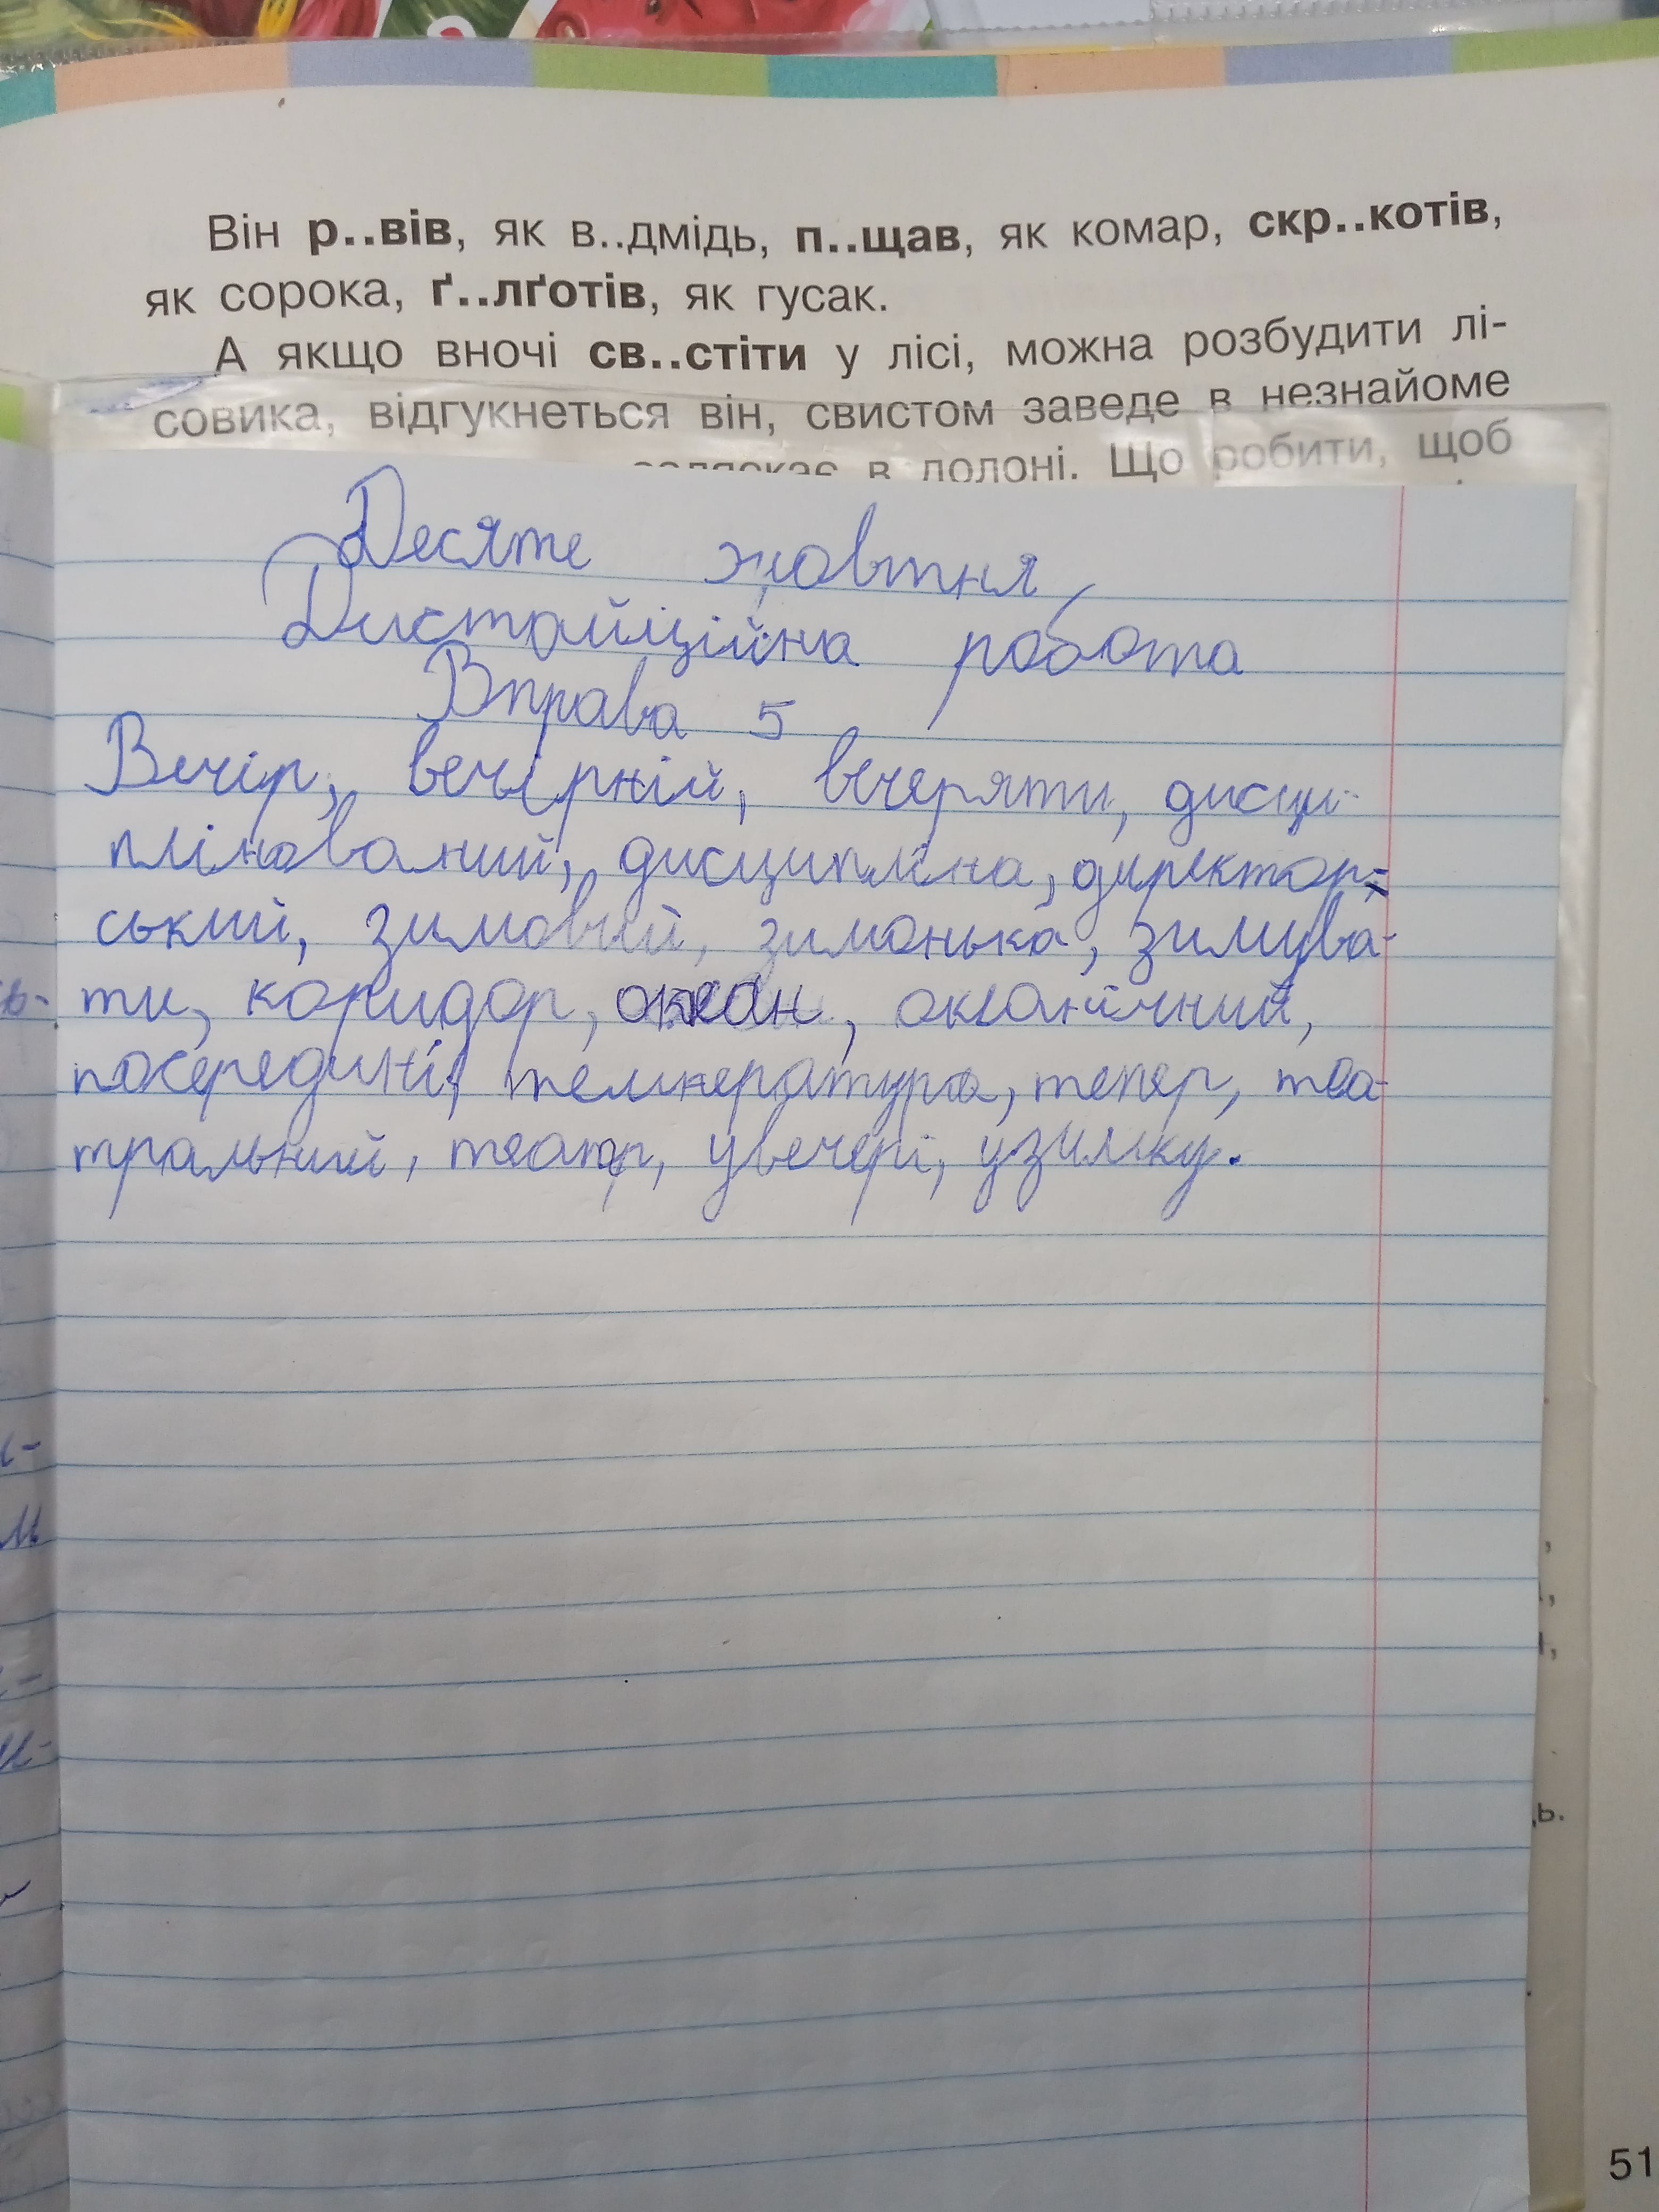 Він р..вів, як в..дмідь, п..щав, як комар, скр..котів,
як сорока, ґ..лґотів, як гусак.
А якщо вночі св..стіти у лісі, можна розбудити лі-
совика, відгукнеться він, свистом заведе в незнайоме
в долоні. Що робити, щоб
Десяте жовтня
Дистайційна робота
Вправа 5
Вечір, вечірній, вечеряти, дисци-
плінований, дисципліна, директор-
ський, зимовий, зимонька, зимува-
ти, коридор, океан, океанічний,
посередині, температура, тепер, теа-
тральний, театр, увечері, узимку.
51